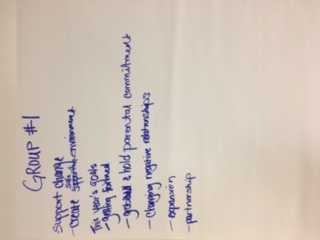 GROUP #1
support change
safe
- create supportive environment
This year's goals
- getting feedback
- & hold parental commitment
- changing negative relationships
- expansion
- partnership